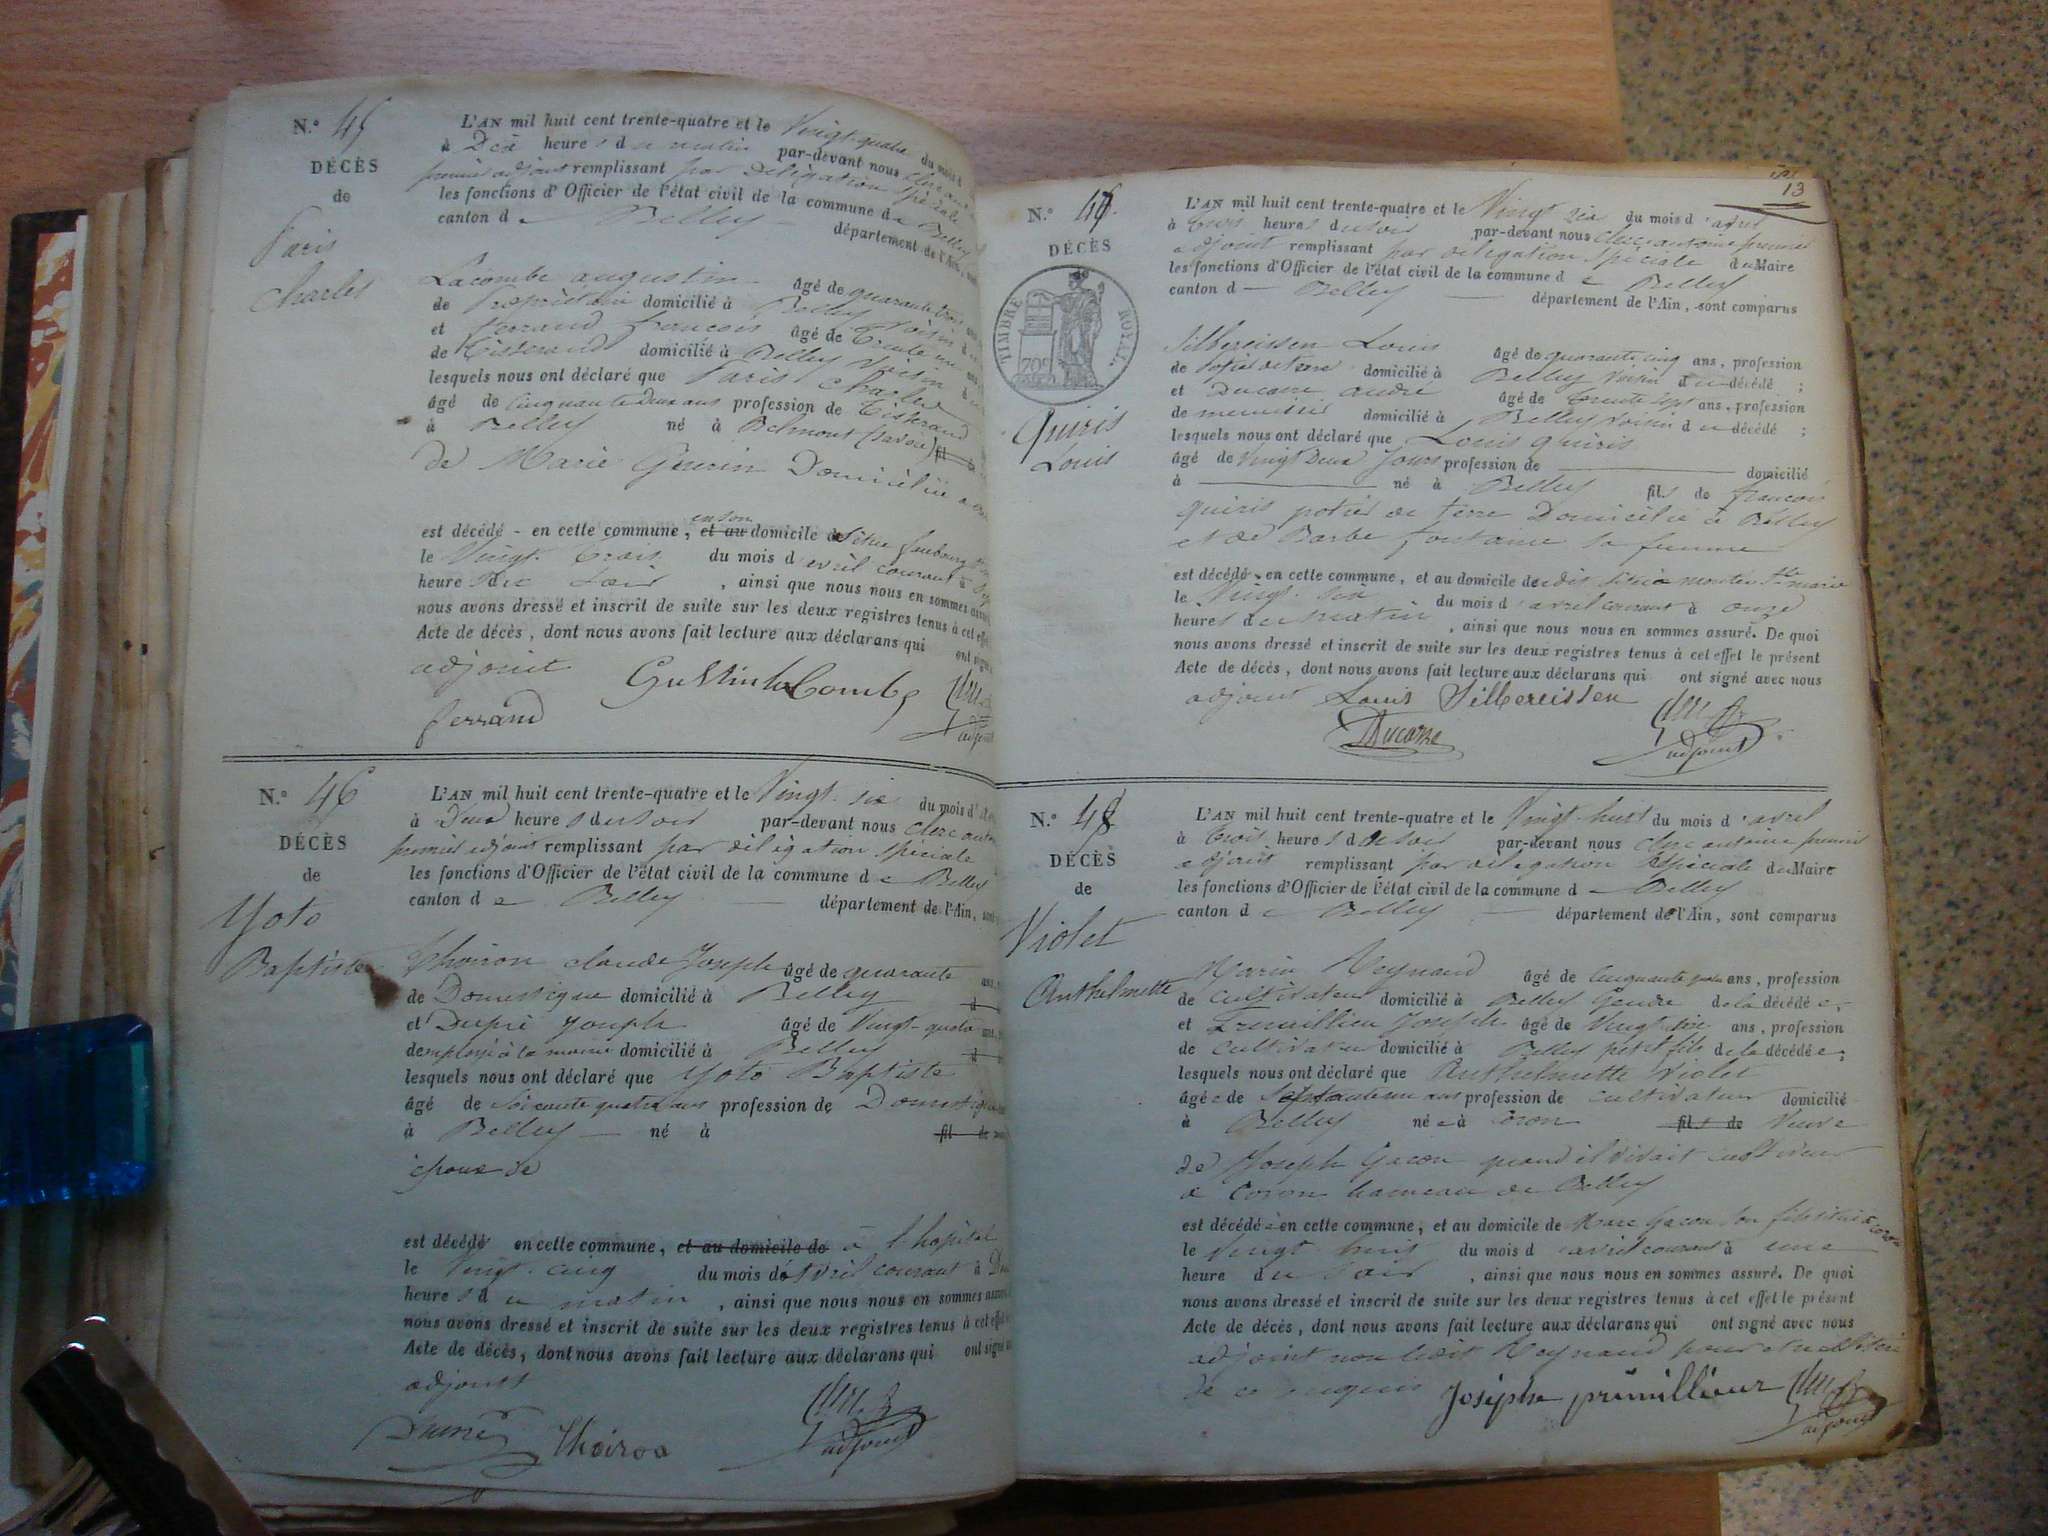 N.° 45
DÉCÈS
de
Paris
Charles
L'AN mil huit cent trente-quatre et le Vingt quatre du mois d
à Dix heures du matin par-devant nous
premier adjoint remplissant par délégation spéciale
les fonctions d'Officier de l'état civil de la commune de Belley
canton de Belley département de l'Ain,
Lacombe augustin âgé de quarante trois
de Propriétaire domicilié à Belley Voisin
et ferrand françois âgé de trente
de Tisserand domicilié à Belley Voisin
lesquels nous ont déclaré que Paris Charles
âgé de cinquante deux ans profession de Tisserand
à Belley né à Belmont (Savoie)
de Marie Domicilié
est décédé en cette commune, en son et au domicile faubourg
le Vingt trois du mois d'avril courant à
heures du soir, ainsi que nous nous en sommes
nous avons dressé et inscrit de suite sur les deux registres tenus à cet
Acte de décès, dont nous avons fait lecture aux déclarans qui ont
adjoint
ferrand
adjoint
N.° 46
DÉCÈS
de
Yoto
Baptiste
L'AN mil huit cent trente-quatre et le Vingt six du mois d'
à Deux heures du soir par-devant nous clerc
premier adjoint remplissant par délégation spéciale
les fonctions d'Officier de l'état civil de la commune de Belley
canton de Belley département de l'Ain,
Thoiron claude Joseph âgé de quarante
de Domestique domicilié à Belley
et Dupré Joseph âgé de Vingt-quatre
d'employé à la mairie domicilié à Belley
lesquels nous ont déclaré que Yoto Baptiste
âgé de Soixante quatre ans profession de Domestique
à Belley né à fil de
époux de
est décédé en cette commune, et au domicile de à l'hopital
le Vingt cinq du mois d'avril courant à
heures du matin, ainsi que nous nous en sommes
nous avons dressé et inscrit de suite sur les deux registres tenus à cet effet
Acte de décès, dont nous avons fait lecture aux déclarans qui ont signé
adjoint
Thoiron
adjoint
13
N.° 47
DÉCÈS
TIMBRE ROYAL
70c
Quiris
Louis
L'AN mil huit cent trente-quatre et le Vingt six du mois d'avril
à trois heures du soir par-devant nous clerc antoine premier
adjoint remplissant par délégation spéciale du Maire
les fonctions d'Officier de l'état civil de la commune de Belley
canton d Belley département de l'Ain, sont comparus
Silbereissen Louis âgé de quarante cinq ans, profession
de Potier de terre domicilié à Belley Voisin du décédé ;
et Ducarre andré âgé de trente sept ans, profession
de menuisier domicilié à Belley Voisin du décédé ;
lesquels nous ont déclaré que Louis Quiris
âgé de Vingt Deux Jours profession de domicilié
à né à Belley fils de francois
Quiris potier de terre Domicilié à Belley
et de Barbe fontaine sa femme
est décédé en cette commune, et au domicile dudit situé montée Ste marie
le Vingt six du mois d'avril courant à onze
heures du matin, ainsi que nous nous en sommes assuré. De quoi
nous avons dressé et inscrit de suite sur les deux registres tenus à cet effet le présent
Acte de décès, dont nous avons fait lecture aux déclarans qui ont signé avec nous
adjoint Louis Silbereissen
Ducarre
adjoint
N.° 48
DÉCÈS
de
Violet
Anthelmette
L'AN mil huit cent trente-quatre et le Vingt-huit du mois d'avril
à trois heures du soir par-devant nous clerc antoine premier
adjoint remplissant par délégation spéciale du Maire
les fonctions d'Officier de l'état civil de la commune de Belley
canton de Belley département de l'Ain, sont comparus
Marin Reynaud âgé de cinquante ans, profession
de cultivateur domicilié à Belley Gendre de la décédée ;
et Joseph âgé de Vingt-six ans, profession
de cultivateur domicilié à Belley petit fils de la décédée ;
lesquels nous ont déclaré que Anthelmette Violet
âgée de profession de cultivateur domicilié
à Belley née à Coron fils de Veuve
de Joseph Gacon quand il vivait cultivateur
à Coron hameau de Belley
est décédée en cette commune, et au domicile de Marc Gacon son fils situé à Coron
le Vingt huit du mois d'avril courant à une
heure du soir, ainsi que nous nous en sommes assuré. De quoi
nous avons dressé et inscrit de suite sur les deux registres tenus à cet effet le présent
Acte de décès, dont nous avons fait lecture aux déclarans qui ont signé avec nous
adjoint non ledit Reynaud pour
de ce requis Joseph
adjoint